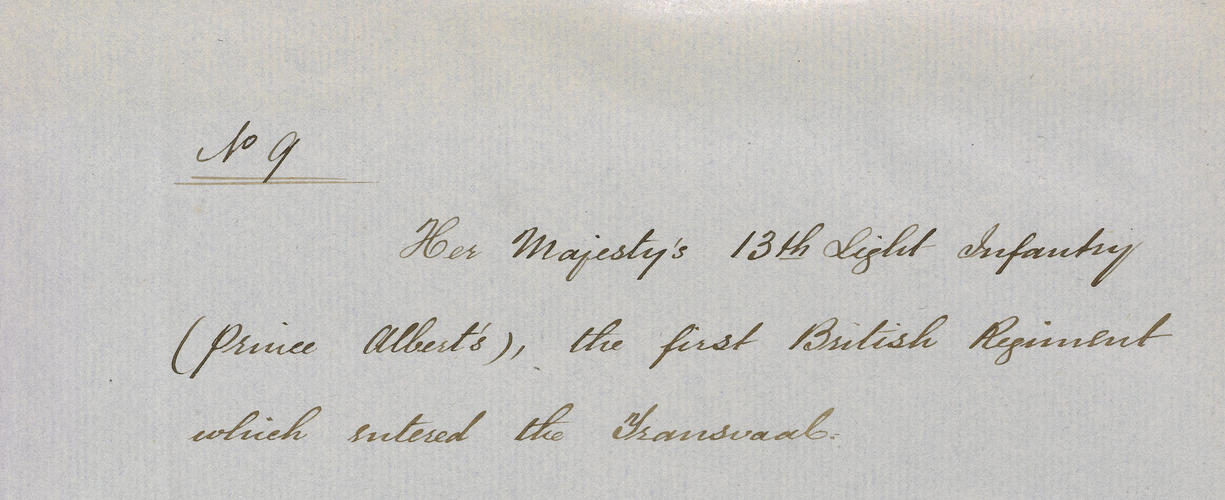 No 9
Her Majesty's 13th Light Infantry
(Prince Albert's), the first British Regiment
which entered the Transvaal.